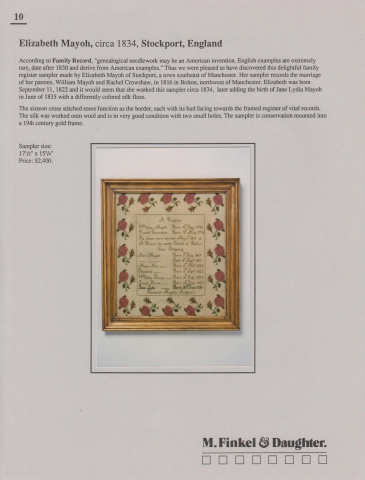 10
Elizabeth Mayoh, circa 1834, Stockport, England
According to Family Record, "genealogical needlework may be an American invention. English examples are extremely
rare, date after 1830 and derive from American examples." Thus we were pleased to have discovered this delightful family
register sampler made by Elizabeth Mayoh of Stockport, a town southeast of Manchester. Her sampler records the marriage
of her parents, William Mayoh and Rachel Crowshaw, in 1816 in Bolton, northwest of Manchester. Elizabeth was born
September 11, 1822 and it would seem that she worked this sampler circa 1834, later adding the birth of Jane Lydia Mayoh
in June of 1835 with a differently colored silk floss.
The sixteen cross stitched roses function as the border, each with its bud facing towards the framed register of vital records.
The silk was worked onto wool and is in very good condition with two small holes. The sampler is conservation mounted into
a 19th century gold frame.
Sampler size:
17½" x 15¼"
Price: $2,400.
A Register
M. Finkel & Daughter.